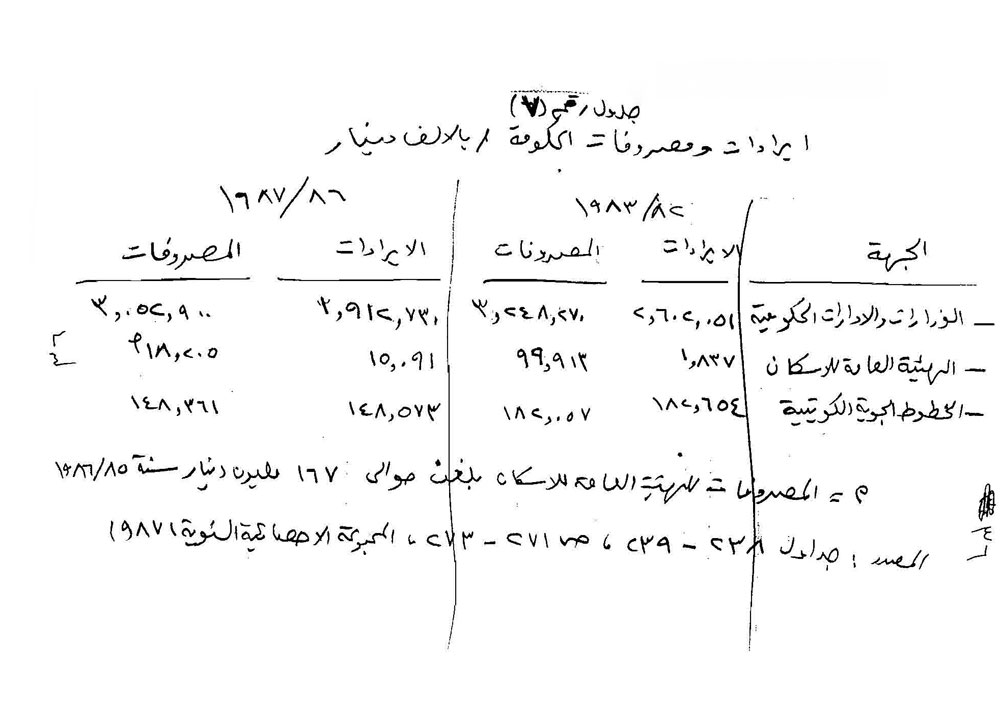 جدول رقم (٧)
ايرادات ومصروفات الحكومة / بالالف دينار
١٩٨٣/٨٢ ١٩٨٧/٨٦
الجهة الايرادات المصروفات الايرادات المصروفات
– الوزارات والادارات الحكومية ٢,٦٠٢,٠٥١ ٣,٢٤٨,٢٧٠ ٢,٩١٢,٧٣٠ ٣,٠٥٢,٩٠٠
– الهيئة العامة للاسكان ١,٨٣٧ ٩٩,٩١٣ ١٥,٠٩١ ١١٨,٢٠٥م
– الخطوط الجوية الكويتية ١٨٢,٦٥٤ ١٨٢,٠٥٧ ١٤٨,٥٧٣ ١٤٨,٣٦١
م = المصروفات للهيئة العامة للاسكان بلغت حوالى ١٦٧ مليون دينار سنة ١٩٨٦/٨٥
المصدر : جداول ٢٣٨ – ٢٣٩ ، ص ٢٧١ – ٢٧٣ ، المجموعة الاحصائية السنوية ١٩٨٧